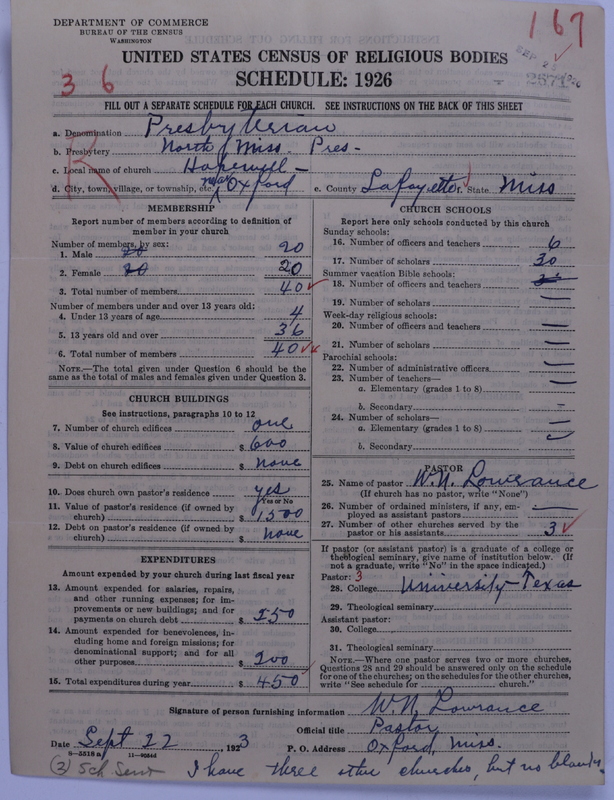 DEPARTMENT OF COMMERCE
BUREAU OF THE CENSUS
WASHINGTON
167
SEP 25 1926
2671
UNITED STATES CENSUS OF RELIGIOUS BODIES
36
SCHEDULE: 1926
FILL OUT A SEPARATE SCHEDULE FOR EACH CHURCH. SEE INSTRUCTIONS ON THE BACK OF THIS SHEET
a. Denomination Presbyterian
b. Presbytery North Miss. Pres-
c. Local name of church Hopewell -
d. City, town, village, or township, etc. near Oxford e. County Lafayette f. State Miss
R
MEMBERSHIP
Report number of members according to definition of
member in your church
Number of members, by sex:
1. Male 20 20
2. Female 20 20
3. Total number of members 40
Number of members under and over 13 years old:
4. Under 13 years of age 4
5. 13 years old and over 36
6. Total number of members 40
NOTE.—The total given under Question 6 should be the
same as the total of males and females given under Question 3.
CHURCH BUILDINGS
See instructions, paragraphs 10 to 12
7. Number of church edifices one
8. Value of church edifices $ 600
9. Debt on church edifices $ none
10. Does church own pastor's residence yes
Yes or No
11. Value of pastor's residence (if owned by
church) $ 1500
12. Debt on pastor's residence (if owned by
church) $ none
EXPENDITURES
Amount expended by your church during last fiscal year
13. Amount expended for salaries, repairs,
and other running expenses; for im-
provements or new buildings; and for
payments on church debt $ 250
14. Amount expended for benevolences, in-
cluding home and foreign missions; for
denominational support; and for all
other purposes $ 200
15. Total expenditures during year $ 450
CHURCH SCHOOLS
Report here only schools conducted by this church
Sunday schools:
16. Number of officers and teachers 6
17. Number of scholars 30
Summer vacation Bible schools:
18. Number of officers and teachers
19. Number of scholars —
Week-day religious schools:
20. Number of officers and teachers —
21. Number of scholars —
Parochial schools:
22. Number of administrative officers —
23. Number of teachers—
a. Elementary (grades 1 to 8) —
b. Secondary —
24. Number of scholars—
a. Elementary (grades 1 to 8) —
b. Secondary —
PASTOR
25. Name of pastor W.N. Lowrance
(If church has no pastor, write "None")
26. Number of ordained ministers, if any, em-
ployed as assistant pastors —
27. Number of other churches served by the
pastor or his assistants 3
If pastor (or assistant pastor) is a graduate of a college or
theological seminary, give name of institution below. (If
not a graduate, write "No" in the space indicated.)
Pastor: 3
28. College University Texas
29. Theological seminary
Assistant pastor:
30. College
31. Theological seminary
NOTE.—Where one pastor serves two or more churches,
Questions 28 and 29 should be answered only on the schedule
for one of the churches; on the schedules for the other churches,
write "See schedule for church."
Signature of person furnishing information W.N. Lowrance
Official title Pastor
Date Sept 22, 1923 P. O. Address Oxford, Miss.
8—5518a 11—
(2) Sch Sent I have three other churches, but no blanks